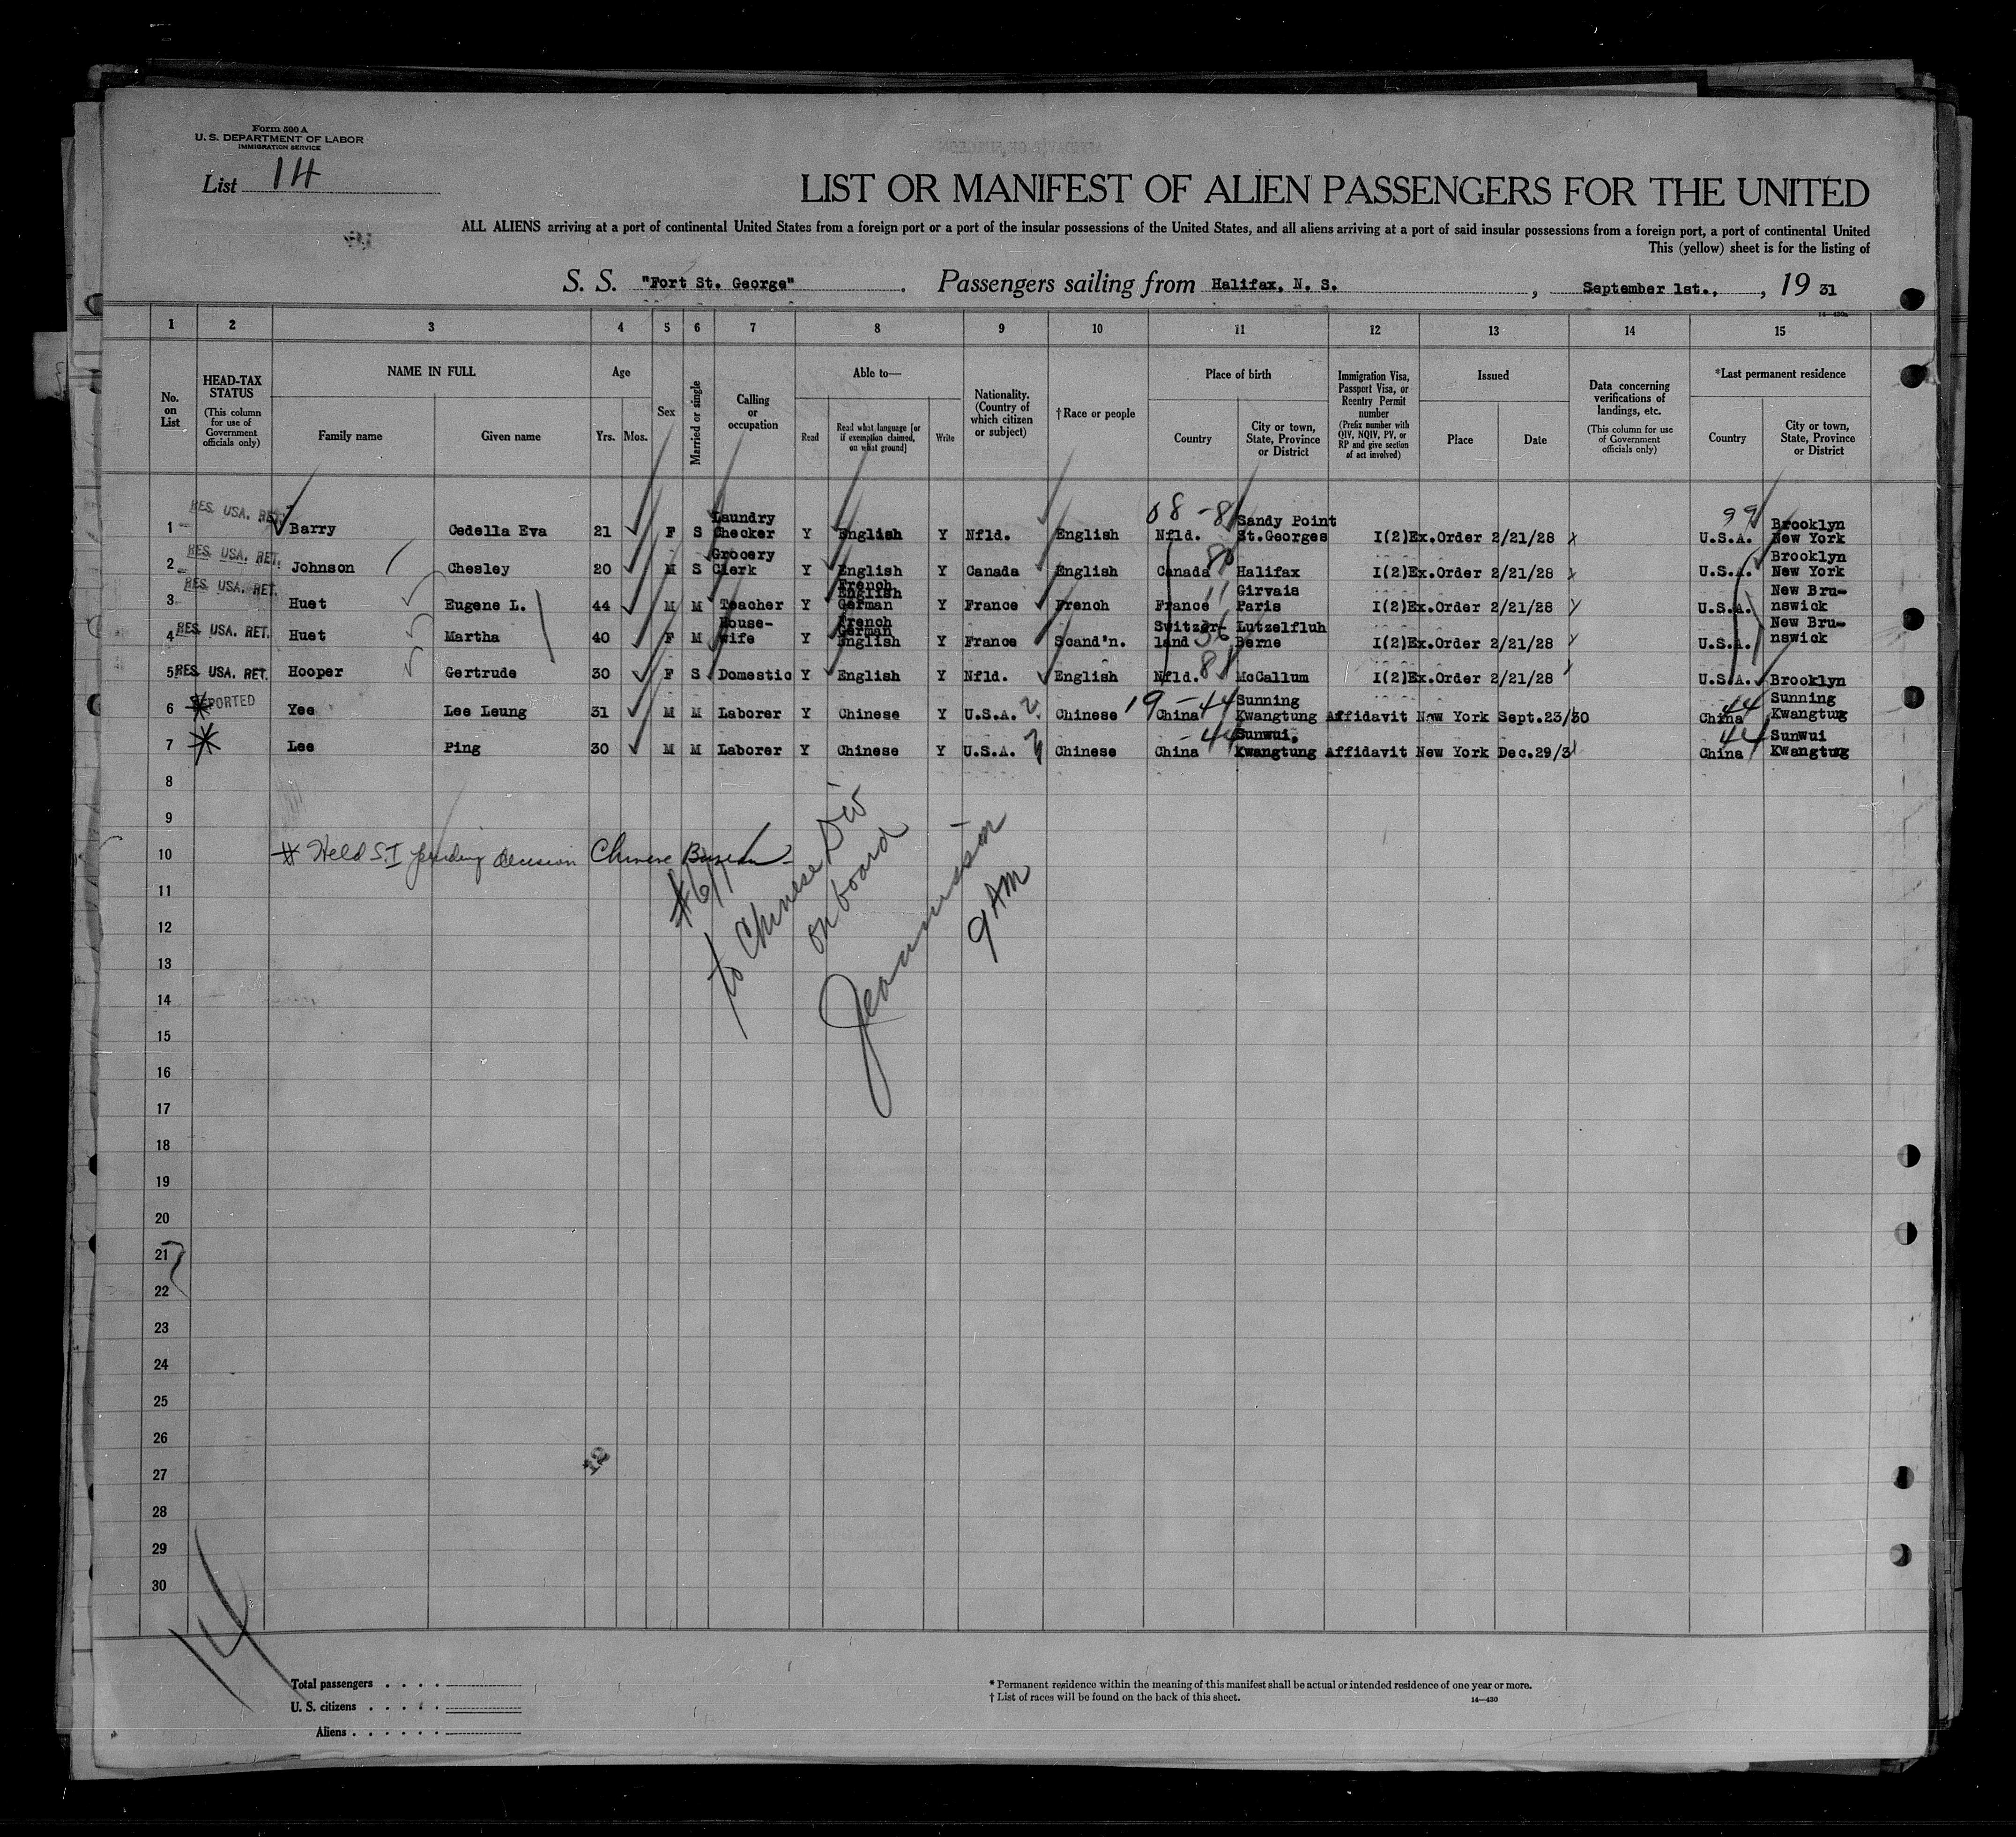 Form 500 A
U. S. DEPARTMENT OF LABOR
IMMIGRATION SERVICE
List 14
LIST OR MANIFEST OF ALIEN PASSENGERS FOR THE UNITED
ALL ALIENS arriving at a port of continental United States from a foreign port or a port of the insular possessions of the United States, and all aliens arriving at a port of said insular possessions from a foreign port, a port of continental United
This (yellow) sheet is for the listing of
S. S. "Fort St. George". Passengers sailing from Halifax, N. S., September 1st., , 19 31
14—430a
1 2 3 4 5 6 7 8 9 10 11 12 13 14 15
No. on List
HEAD-TAX STATUS (This column for use of Government officials only)
NAME IN FULL
Family name Given name
Age
Yrs. Mos.
Sex
Married or single
Calling or occupation
Able to—
Read Read what language [or if exemption claimed, on what ground] Write
Nationality. (Country of which citizen or subject)
† Race or people
Place of birth
Country City or town, State, Province or District
Immigration Visa, Passport Visa, or Reentry Permit number (Prefix number with QIV, NQIV, PV, or RP and give section of act involved)
Issued
Place Date
Data concerning verifications of landings, etc. (This column for use of Government officials only)
*Last permanent residence
Country City or town, State, Province or District
1 RES. USA. RET. Barry Cedella Eva 21 F S Laundry Checker Y English Y Nfld. English 68 - 81 Nfld. Sandy Point St.Georges I(2)Ex.Order 2/21/28 99 U.S.A. Brooklyn New York
2 RES. USA. RET. Johnson Chesley 20 M S Grocery Clerk Y English Y Canada English Canada 80 Halifax I(2)Ex.Order 2/21/28 U.S.A. Brooklyn New York
3 RES. USA. RET. Huet Eugene L. 44 M M Teacher Y French English German Y France French France 11 Girvais Paris I(2)Ex.Order 2/21/28 U.S.A. New Bru- nswick
4 RES. USA. RET. Huet Martha 40 F M House- wife Y French German English Y France Scand'n. Switzer- land 36 Lutzelfluh Berne I(2)Ex.Order 2/21/28 U.S.A. New Bru- nswick
5 RES. USA. RET. Hooper Gertrude 30 F S Domestic Y English Y Nfld. English Nfld. 81 McCallum I(2)Ex.Order 2/21/28 U.S.A. Brooklyn
6 Yee Lee Leung 31 M M Laborer Y Chinese Y U.S.A. Chinese 19 - 44 China Sunning Kwangtung Affidavit New York Sept.23/30 China 44 Sunning Kwangtung
7 Lee Ping 30 M M Laborer Y Chinese Y U.S.A. Chinese China - 44 Sunwui, Kwangtung Affidavit New York Dec.29/31 China 44 Sunwui Kwangtung
8
9
10 # Held S.I pending decision Chinese Bureau
#6/7
to Chinese Div
on board
9 AM
11
12
13
14
15
16
17
18
19
20
21
22
23
24
25
26
27
28
29
30
14
Total passengers . . . .
U. S. citizens . . . . .
Aliens . . . . . .
* Permanent residence within the meaning of this manifest shall be actual or intended residence of one year or more.
† List of races will be found on the back of this sheet.
14—430